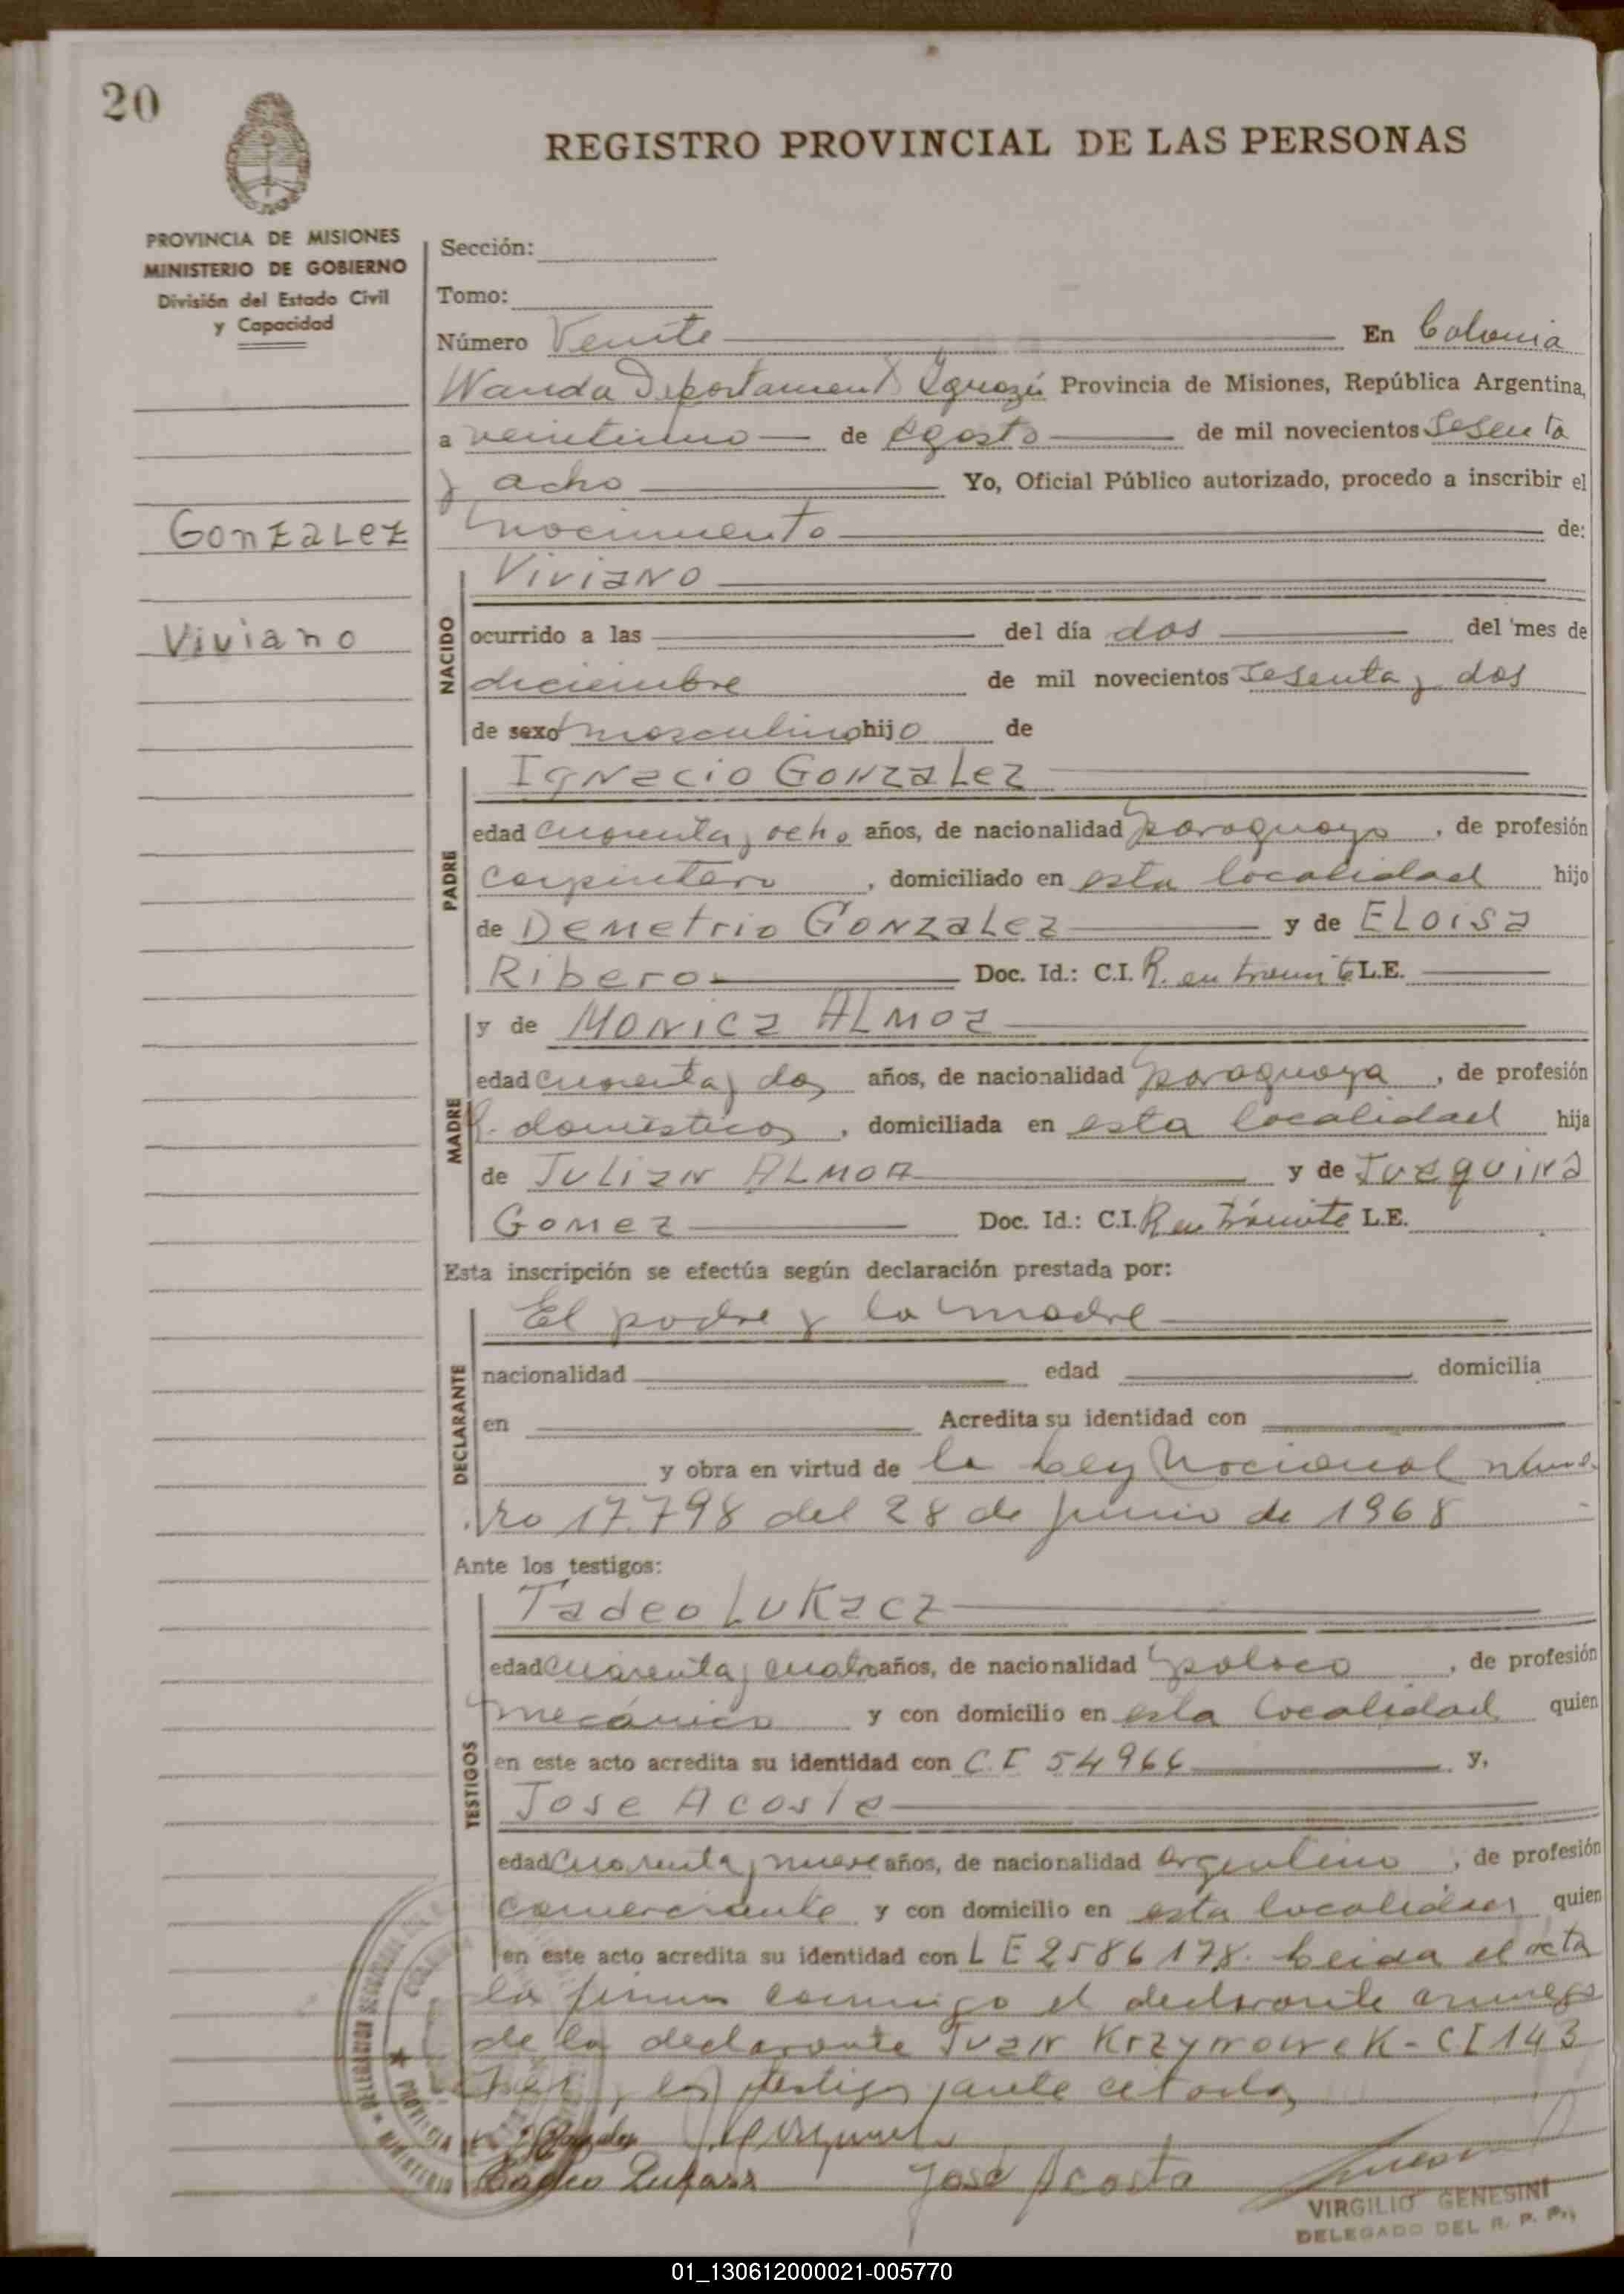 20
REGISTRO PROVINCIAL DE LAS PERSONAS
PROVINCIA DE MISIONES
MINISTERIO DE GOBIERNO
División del Estado Civil
y Capacidad
Gonzalez
Viviano
Sección:
Tomo:
Número Veinte En Colonia
Wanda Departamento Iguazú Provincia de Misiones, República Argentina,
a veintiuno de Agosto de mil novecientos sesenta
y ocho Yo, Oficial Público autorizado, procedo a inscribir el
nacimiento de:
NACIDO
Viviano
ocurrido a las del día dos del mes de
diciembre de mil novecientos sesenta y dos
de sexo masculino hijo de
PADRE
Ignacio Gonzalez
edad cuarenta y ocho años, de nacionalidad paraguayo, de profesión
carpintero, domiciliado en esta localidad hijo
de Demetrio Gonzalez y de Eloisa
Ribero Doc. Id.: C.I. R. en tramite L.E.
MADRE
y de Monica Almoa
edad cuarenta y dos años, de nacionalidad paraguaya, de profesión
domésticos, domiciliada en esta localidad hija
de Julian Almoa y de Juaquina
Gomez Doc. Id.: C.I. R en trámite L.E.
Esta inscripción se efectúa según declaración prestada por:
DECLARANTE
El padre y la madre
nacionalidad edad domicilia
en Acredita su identidad con
y obra en virtud de la Ley Nacional núme
ro 17.798 del 28 de junio de 1968
Ante los testigos:
TESTIGOS
Tadeo Lukacz
edad cuarenta y cuatro años, de nacionalidad polaco, de profesión
mecánico y con domicilio en esta localidad quien
en este acto acredita su identidad con C.I 54966 y,
Jose Acosta
edad cuarenta y nueve años, de nacionalidad argentino, de profesión
comerciante y con domicilio en esta localidad quien
en este acto acredita su identidad con L E 2586178. Leida el acta
la firman conmigo el declarante a ruego
de la declarante Juan Krzynowek - CI 143
y los testigos ante citados
José Acosta
VIRGILIO GENESINI
DELEGADO DEL R. P. P.
01_130612000021-005770